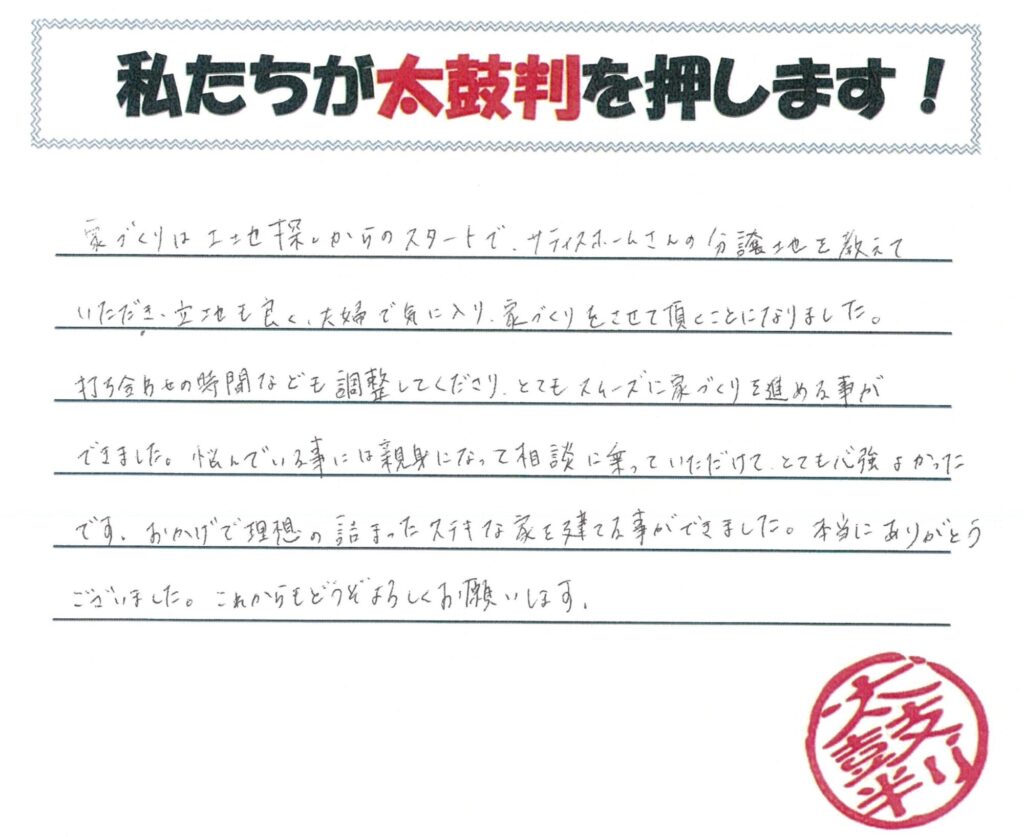 私たちが太鼓判を押します！
家づくりは土地探しからのスタートで、サティスホームさんの分譲地を教えて
いただき、立地も良く、夫婦で気に入り、家づくりをさせて頂くことになりました。
打ち合わせの時間なども調整してくださり、とてもスムーズに家づくりを進める事が
できました。悩んでいる事には親身になって相談に乗っていただけて、とても心強よかった
です。おかげで理想の詰まったステキな家を建てる事ができました。本当にありがとう
ございました。これからもどうぞよろしくお願いします。
太鼓判